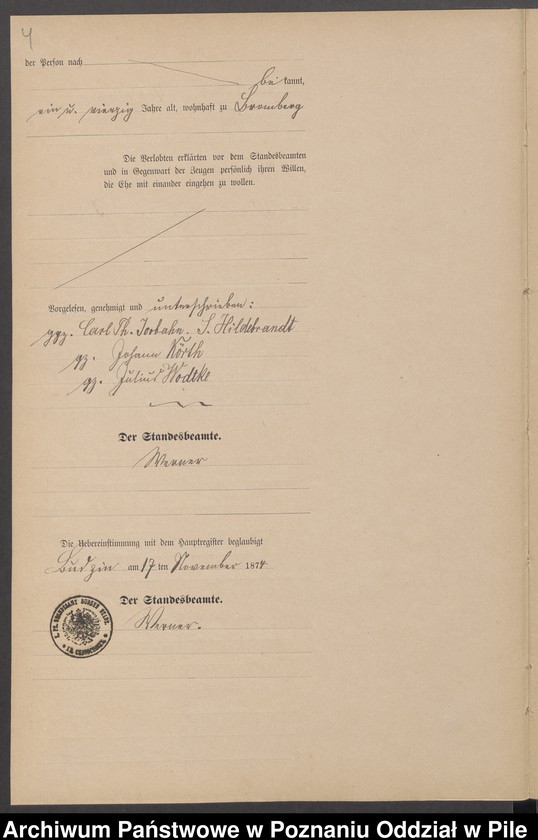 4
der Person nach
be kannt,
ein u. vierzig Jahre alt, wohnhaft zu Bromberg
Die Verlobten erklärten vor dem Standesbeamten
und in Gegenwart der Zeugen persönlich ihren Willen,
die Ehe mit einander eingehen zu wollen.
Vorgelesen, genehmigt und unterschrieben:
ggz. Carl Ph. Jorbahn. S. Hildebrandt
gz. Johann Körth
gz. Julius Wodtke
Der Standesbeamte.
Werner
Die Uebereinstimmung mit dem Hauptregister beglaubigt
Budzin am 17 ten November 1874
Der Standesbeamte.
Werner.
K. PR. STANDESAMT
KR. CHODZIESEN.
Archiwum Państwowe w Poznaniu Oddział w Pile